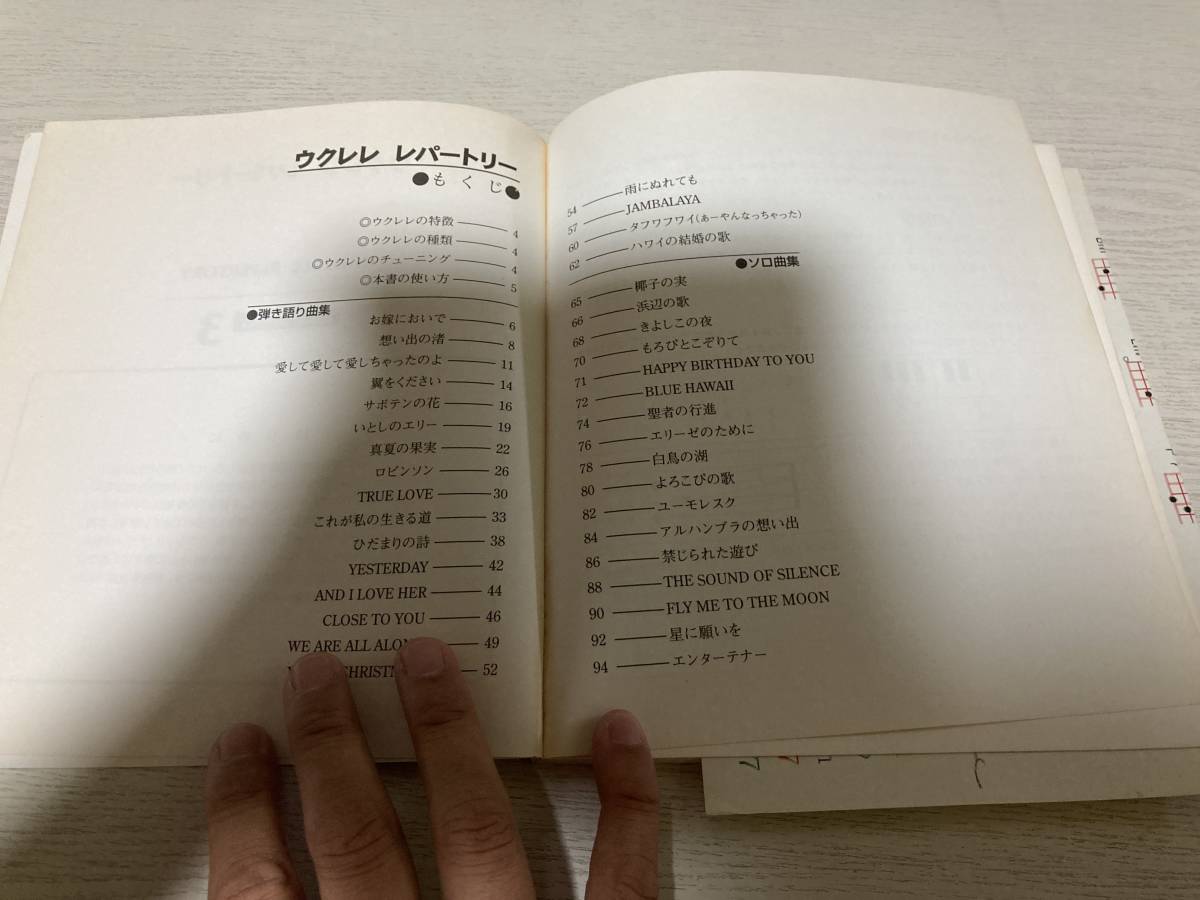 ウクレレ レパートリー
●もくじ●
◎ウクレレの特徴 4
◎ウクレレの種類 4
◎ウクレレのチューニング 4
◎本書の使い方 5
●弾き語り曲集
お嫁においで 6
想い出の渚 8
愛して愛して愛しちゃったのよ 11
翼をください 14
サボテンの花 16
いとしのエリー 19
真夏の果実 22
ロビンソン 26
TRUE LOVE 30
これが私の生きる道 33
ひだまりの詩 38
YESTERDAY 42
AND I LOVE HER 44
CLOSE TO YOU 46
WE ARE ALL 49
52
54 雨にぬれても
57 JAMBALAYA
60 タフワフワイ(あーやんなっちゃった)
62 ハワイの結婚の歌
●ソロ曲集
65 椰子の実
66 浜辺の歌
68 きよしこの夜
70 もろびとこぞりて
71 HAPPY BIRTHDAY TO YOU
72 BLUE HAWAII
74 聖者の行進
76 エリーゼのために
78 白鳥の湖
80 よろこびの歌
82 ユーモレスク
84 アルハンブラの想い出
86 禁じられた遊び
88 THE SOUND OF SILENCE
90 FLY ME TO THE MOON
92 星に願いを
94 エンターテナー